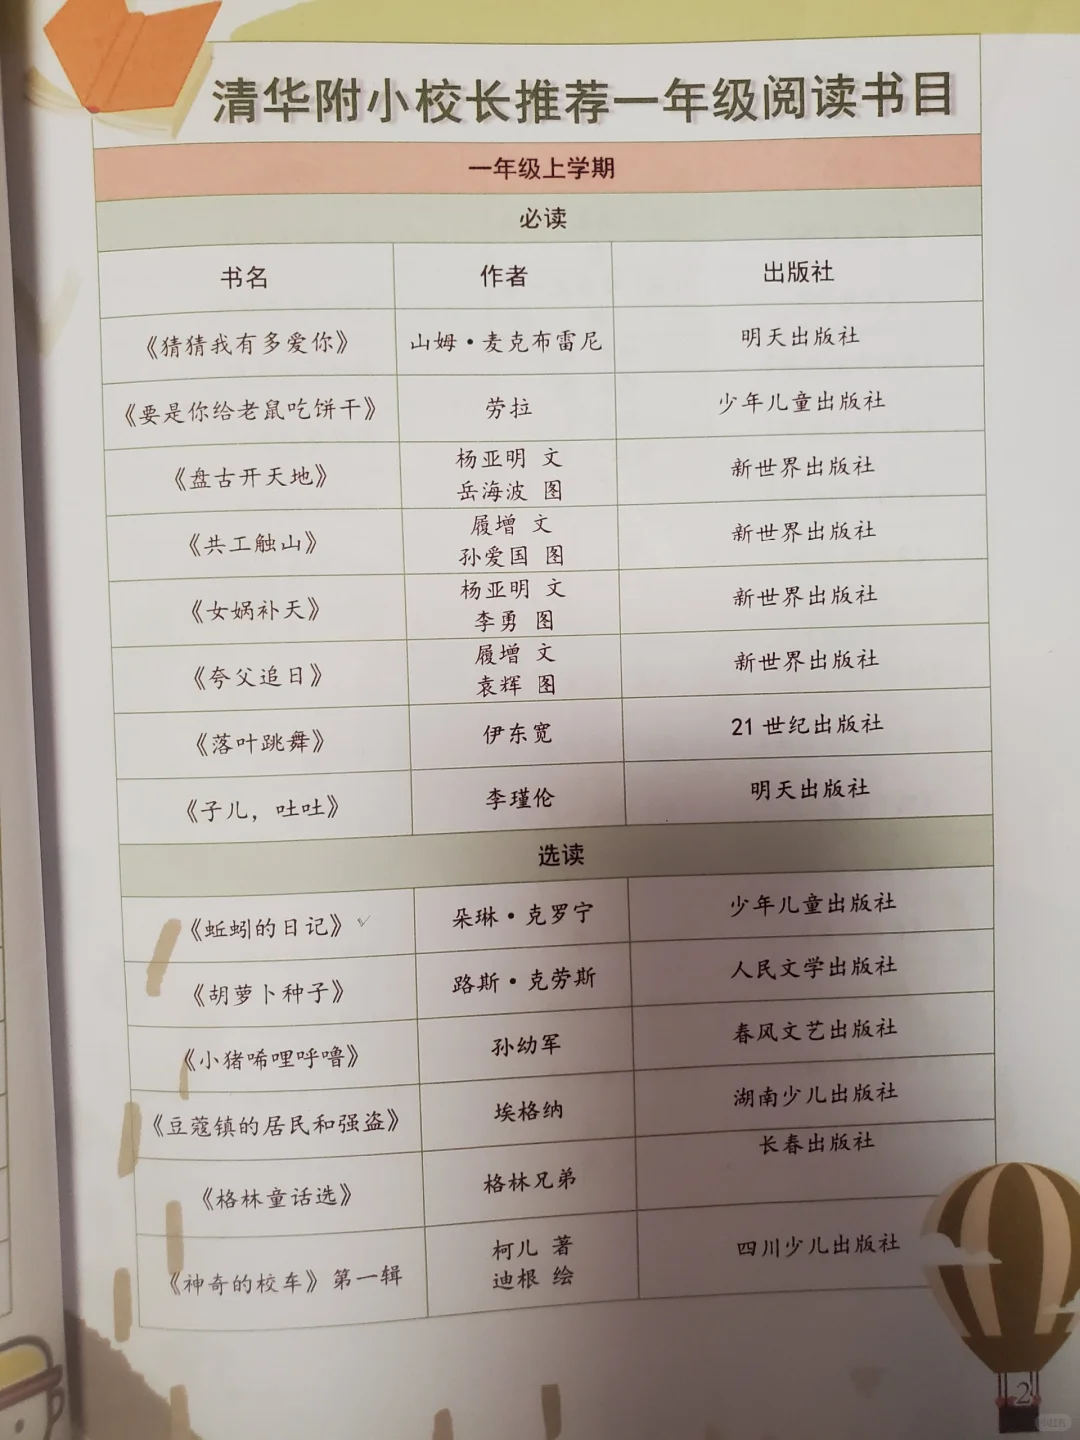 清华附小校长推荐一年级阅读书目
一年级上学期
必读
书名 作者 出版社
《猜猜我有多爱你》 山姆·麦克布雷尼 明天出版社
《要是你给老鼠吃饼干》 劳拉 少年儿童出版社
《盘古开天地》 杨亚明 文 岳海波 图 新世界出版社
《共工触山》 履增 文 孙爱国 图 新世界出版社
《女娲补天》 杨亚明 文 李勇 图 新世界出版社
《夸父追日》 履增 文 袁辉 图 新世界出版社
《落叶跳舞》 伊东宽 21世纪出版社
《子儿，吐吐》 李瑾伦 明天出版社
选读
《蚯蚓的日记》 朵琳·克罗宁 少年儿童出版社
《胡萝卜种子》 路斯·克劳斯 人民文学出版社
《小猪唏哩呼噜》 孙幼军 春风文艺出版社
《豆蔻镇的居民和强盗》 埃格纳 湖南少儿出版社
《格林童话选》 格林兄弟 长春出版社
《神奇的校车》第一辑 柯儿 著 迪根 绘 四川少儿出版社
2